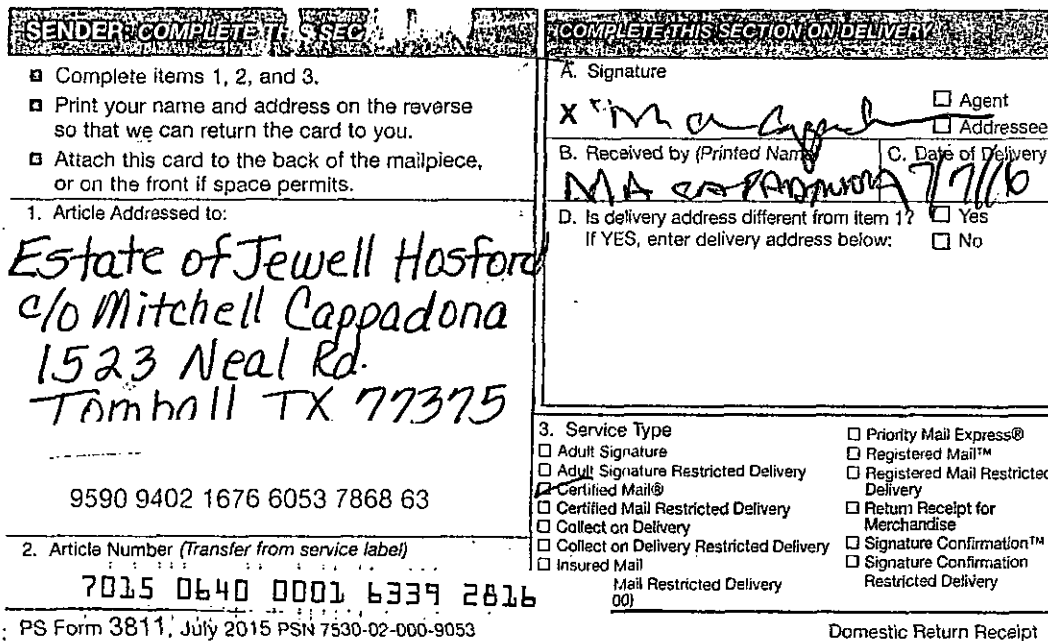 SENDER: COMPLETE THIS SEC
Complete items 1, 2, and 3.
Print your name and address on the reverse
so that we can return the card to you.
Attach this card to the back of the mailpiece,
or on the front if space permits.
1. Article Addressed to:
Estate of Jewell Hosford
c/o Mitchell Cappadona
1523 Neal Rd.
Tomball TX 77375
9590 9402 1676 6053 7868 63
2. Article Number (Transfer from service label)
7015 0640 0001 6339 2816
PS Form 3811, July 2015 PSN 7530-02-000-9053
COMPLETE THIS SECTION ON DELIVERY
A. Signature
X
☐ Agent
☐ Addressee
B. Received by (Printed Name)
C. Date of Delivery
MA CAPPADONA 7/7/16
D. Is delivery address different from item 1? ☐ Yes
If YES, enter delivery address below: ☐ No
3. Service Type
☐ Adult Signature
☐ Adult Signature Restricted Delivery
☑ Certified Mail®
☐ Certified Mail Restricted Delivery
☐ Collect on Delivery
☐ Collect on Delivery Restricted Delivery
☐ Insured Mail
Mail Restricted Delivery
00)
☐ Priority Mail Express®
☐ Registered Mail™
☐ Registered Mail Restricted
Delivery
☐ Return Receipt for
Merchandise
☐ Signature Confirmation™
☐ Signature Confirmation
Restricted Delivery
Domestic Return Receipt